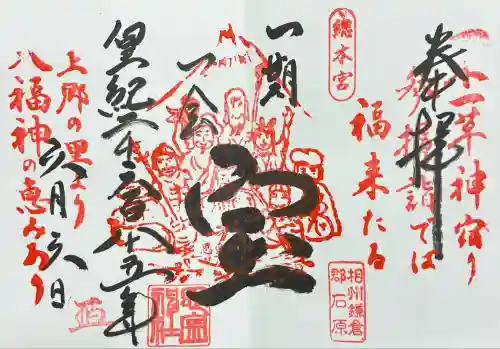 奉拝
一木一草神宿り
詣では
福来たる
總本宮
相州鎌倉
郡石原
一期
一会
宝
皇紀二千六百八十五年
六月六日
上郷の里より
八福神の恵みあり
思金
神社